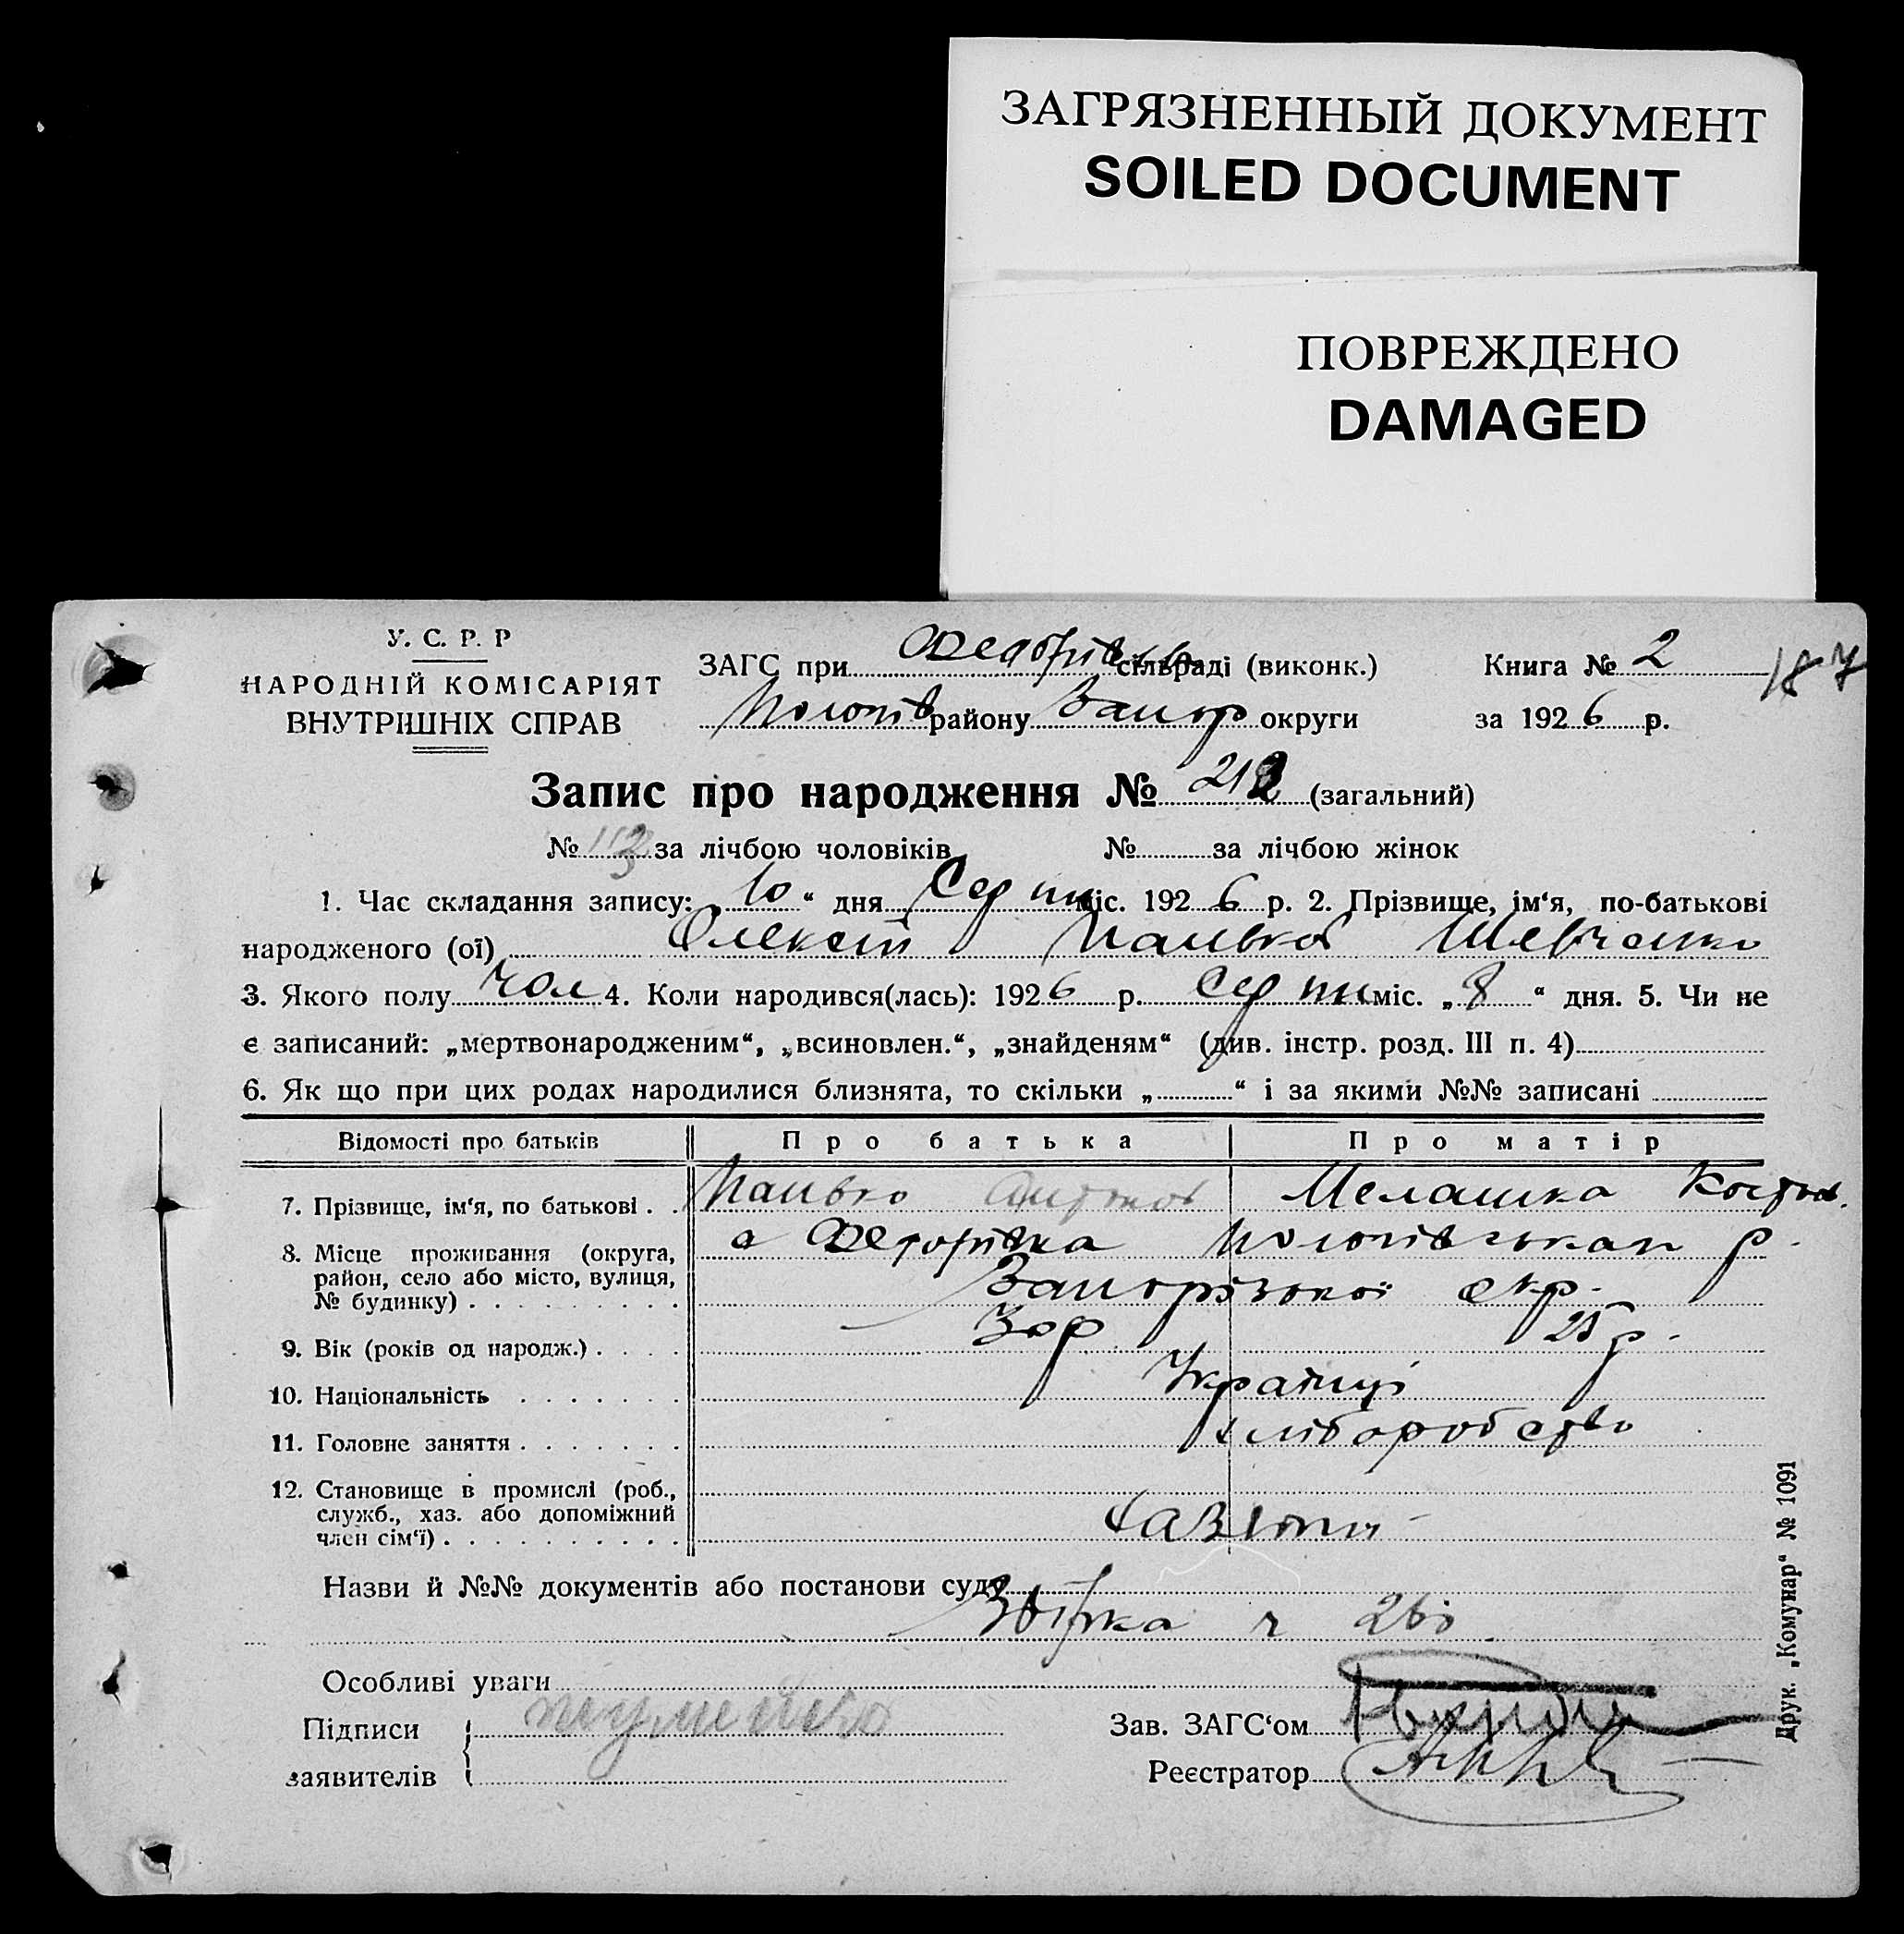 ЗАГРЯЗНЕННЫЙ ДОКУМЕНТ
SOILED DOCUMENT
ПОВРЕЖДЕНО
DAMAGED
У. С. Р. Р
НАРОДНІЙ КОМІСАРІЯТ
ВНУТРІШНІХ СПРАВ
ЗАГС при Федорівсь сільраді (виконк.) Книга № 2
району Запор округи за 1926 р.
187
Запис про народження № 212 (загальний)
№ 113 за лічбою чоловіків № за лічбою жінок
1. Час складання запису: „ 10 “ дня Серпн міс. 1926 р. 2. Прізвище, ім‘я, по-батькові
народженого (ої) Олексій Шевченко
3. Якого полу чол 4. Коли народився(лась): 1926 р. Серпн міс. „ 8 “ дня. 5. Чи не
є записаний: „мертвонародженим“, „всиновлен.“, „знайденям“ (див. інстр. розд. III п. 4)
6. Як що при цих родах народилися близнята, то скільки „ “ і за якими №№ записані
Відомості про батьків Про батька Про матір
7. Прізвище, ім‘я, по батькові . . Мелашка
8. Місце проживання (округа, район, село або місто, вулиця, № будинку) с Федорівка р.
Запорізької окр.
9. Вік (років од народж.) 30 р 25 р.
10. Національність Українці
11. Головне заняття хліборобство
12. Становище в промислі (роб., служб., хаз. або допоміжний член сім‘ї)
Назви й №№ документів або постанови суду
Збірка ч
Особливі уваги
Підписи
заявителів
Зав. ЗАГС‘ом
Реєстратор
Друк. „Комунар“ № 1091